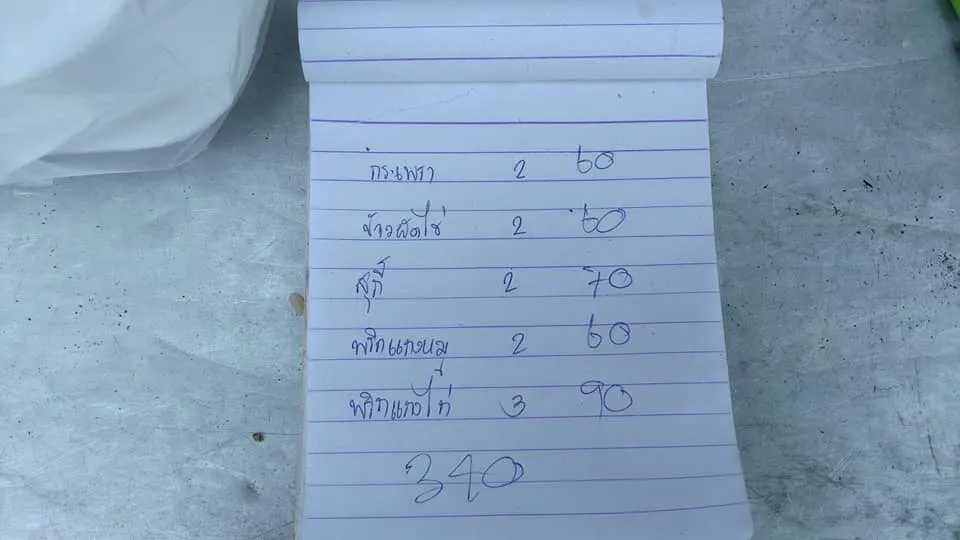 กระเพรา 2 60
ข้าวผัดไข่ 2 60
สุกี้ 2 70
พริกแกงหมู 2 60
พริกแกงไก่ 3 90
340